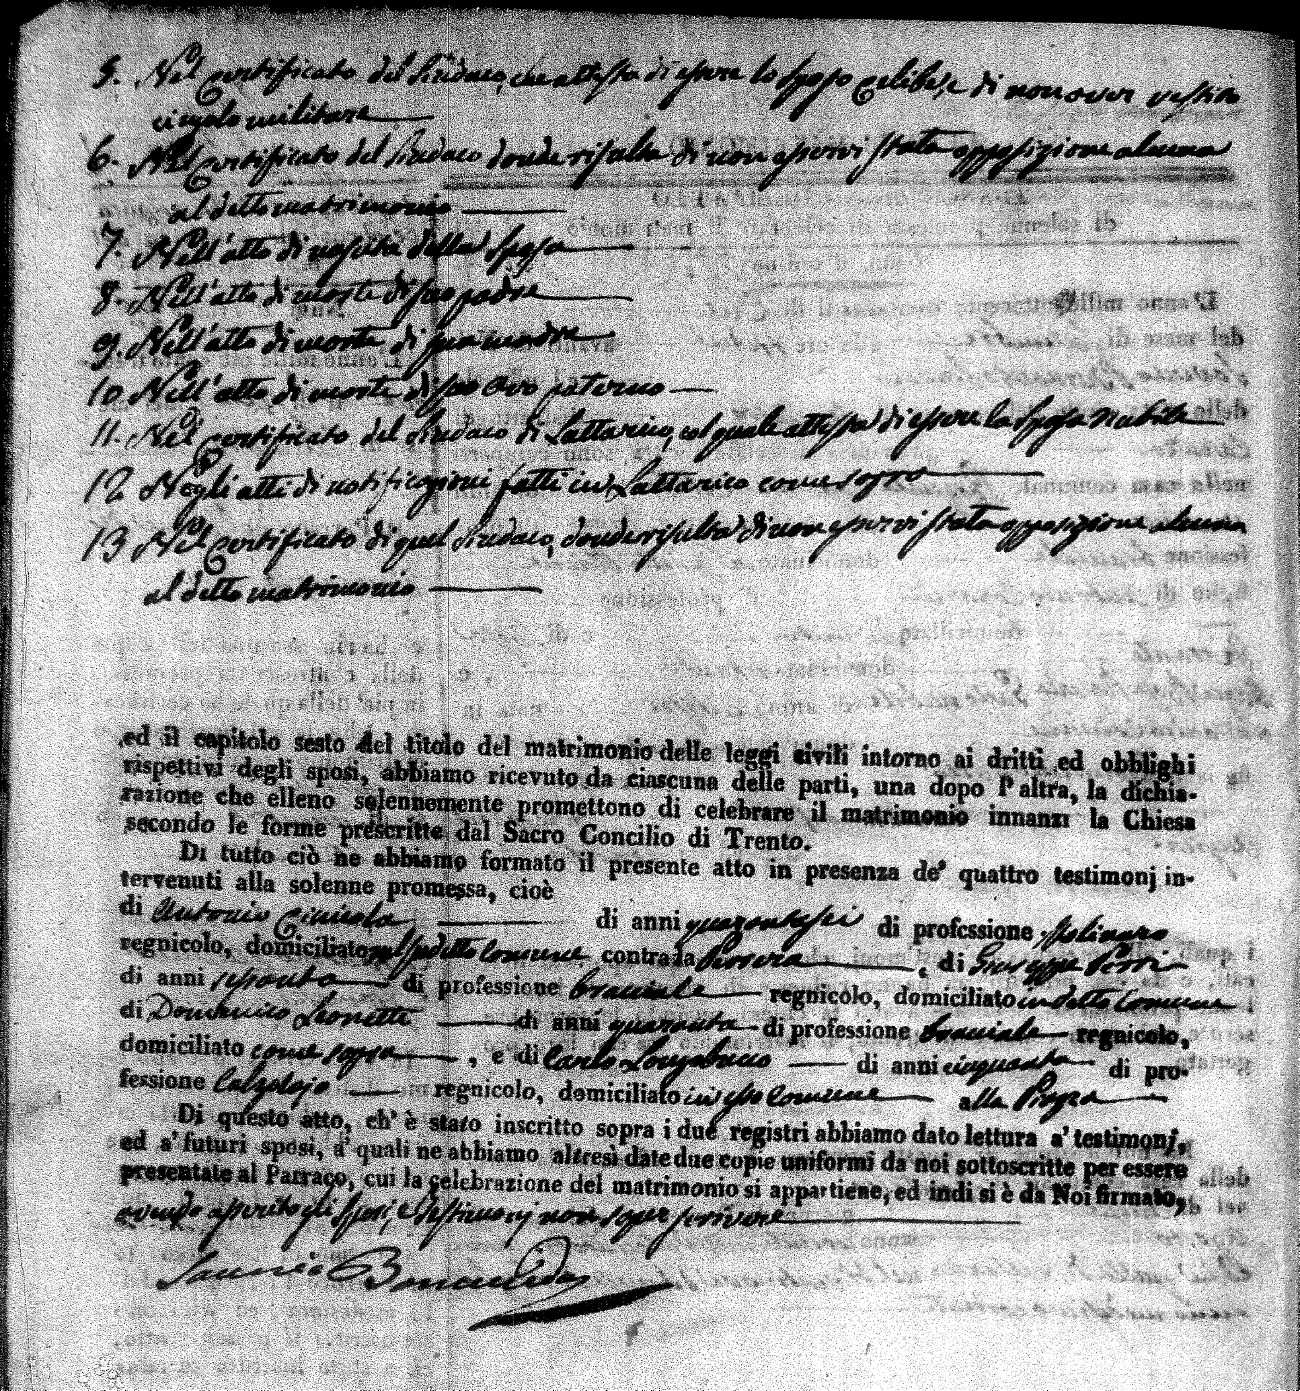 5. Nel certificato del Sindaco, che attesta di essere lo sposo celibe, e di non aver vestito
cingolo militare
6. Nel certificato del Sindaco donde risulta di non esservi stata opposizione alcuna
al detto matrimonio
7. Nell'atto di nascita della sposa
8. Nell'atto di morte di suo padre
9. Nell'atto di morte di sua madre
10. Nell'atto di morte di suo avo paterno
11. Nel certificato del Sindaco di Lattarico, col quale attesta di essere la sposa nubile
12 Negli atti di notificazioni fatti in Lattarico come sopra
13 Nel certificato di quel Sindaco, donde risulta di non esservi stata opposizione alcuna
al detto matrimonio
ed il capitolo sesto del titolo del matrimonio delle leggi civili intorno ai dritti ed obblighi
rispettivi degli sposi, abbiamo ricevuto da ciascuna delle parti, una dopo l'altra, la dichia-
razione che elleno solennemente promettono di celebrare il matrimonio innanzi la Chiesa
secondo le forme prescritte dal Sacro Concilio di Trento.
Di tutto ciò ne abbiamo formato il presente atto in presenza de' quattro testimonj in-
tervenuti alla solenne promessa, cioè
di Antonio di anni quarantasei di professione Molinaro
regnicolo, domiciliato nel sudetto Comune contrada , di Giuseppe Perri
di anni sessanta di professione bracciale regnicolo, domiciliato in detto Comune
di Domenico Leonetti di anni quaranta di professione bracciale regnicolo,
domiciliato come sopra , e di Carlo Longobucco di anni cinquanta di pro-
fessione Calzolajo regnicolo, domiciliato in esso Comune alla
Di questo atto, ch' è stato inscritto sopra i due registri abbiamo dato lettura a' testimonj,
ed a' futuri sposi, a' quali ne abbiamo altresì date due copie uniformi da noi sottoscritte per essere
presentate al Parraco, cui la celebrazione del matrimonio si appartiene, ed indi si è da Noi firmato,
avendo asserito gli sposi, e testimonj non saper scrivere